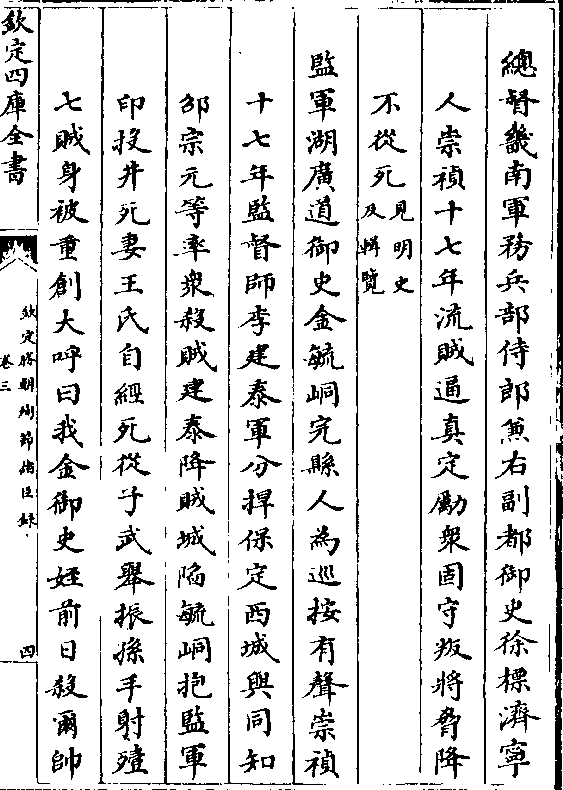 總督畿南軍務兵部侍郎兼右副都御史徐標濟寧
人崇禎十七年流賊逼真定勵衆固守叛將脅降
不從死見明史及輯覽
監軍湖廣道御史金毓峒完縣人為巡按有聲崇禎
十七年監督師李建泰軍分捍保定西城與同知
邵宗元等率衆殺賊建泰降賊城陷毓峒抱監軍
印投井死妻王氏自經死從子武舉振孫手射殪
七賊身被重創大呼曰我金御史姪前日殺爾帥
欽定四庫全書
欽定勝朝殉節諸臣錄
卷三
四